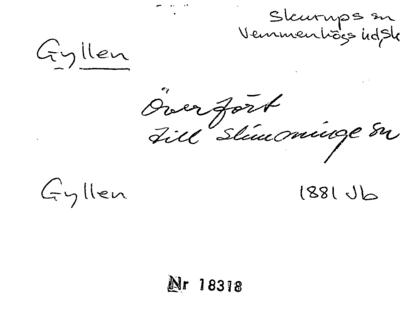 Skurups sn
Vemmenhögs hd, Sk
Gyllen
Överfört
till Slimminge sn
Gyllen 1881 Jb
Nr 18318